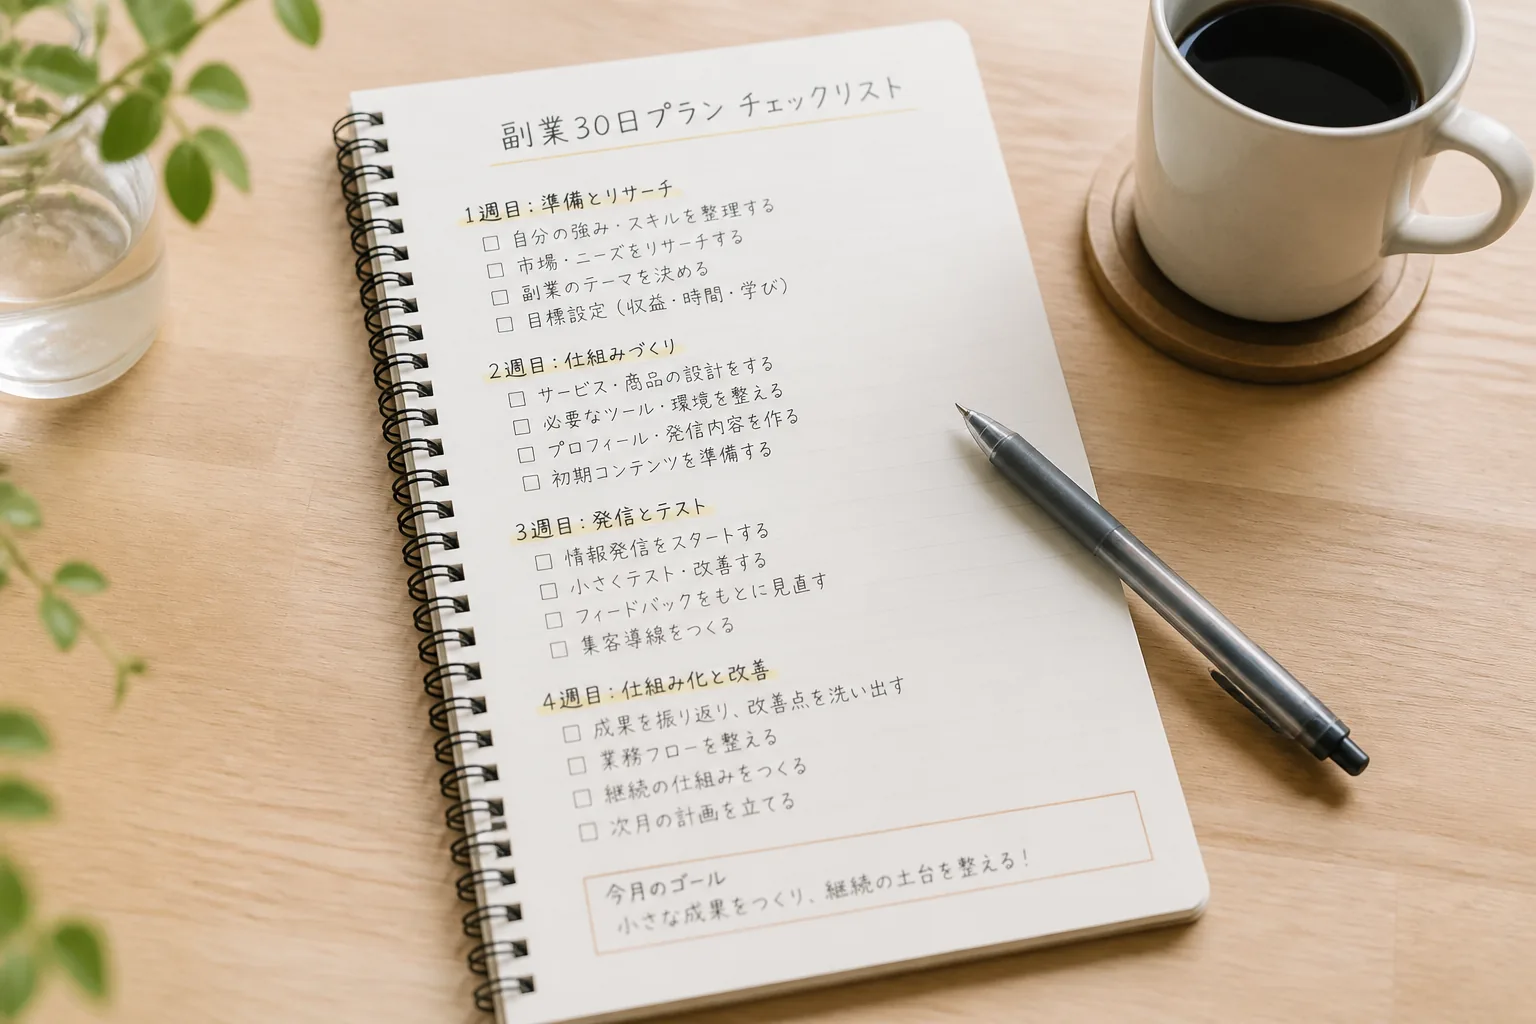 副業30日プラン チェックリスト
1週目：準備とリサーチ
□ 自分の強み・スキルを整理する
□ 市場・ニーズをリサーチする
□ 副業のテーマを決める
□ 目標設定（収益・時間・学び）
2週目：仕組みづくり
□ サービス・商品の設計をする
□ 必要なツール・環境を整える
□ プロフィール・発信内容を作る
□ 初期コンテンツを準備する
3週目：発信とテスト
□ 情報発信をスタートする
□ 小さくテスト・改善する
□ フィードバックをもとに見直す
□ 集客導線をつくる
4週目：仕組み化と改善
□ 成果を振り返り、改善点を洗い出す
□ 業務フローを整える
□ 継続の仕組みをつくる
□ 次月の計画を立てる
今月のゴール
小さな成果をつくり、継続の土台を整える！